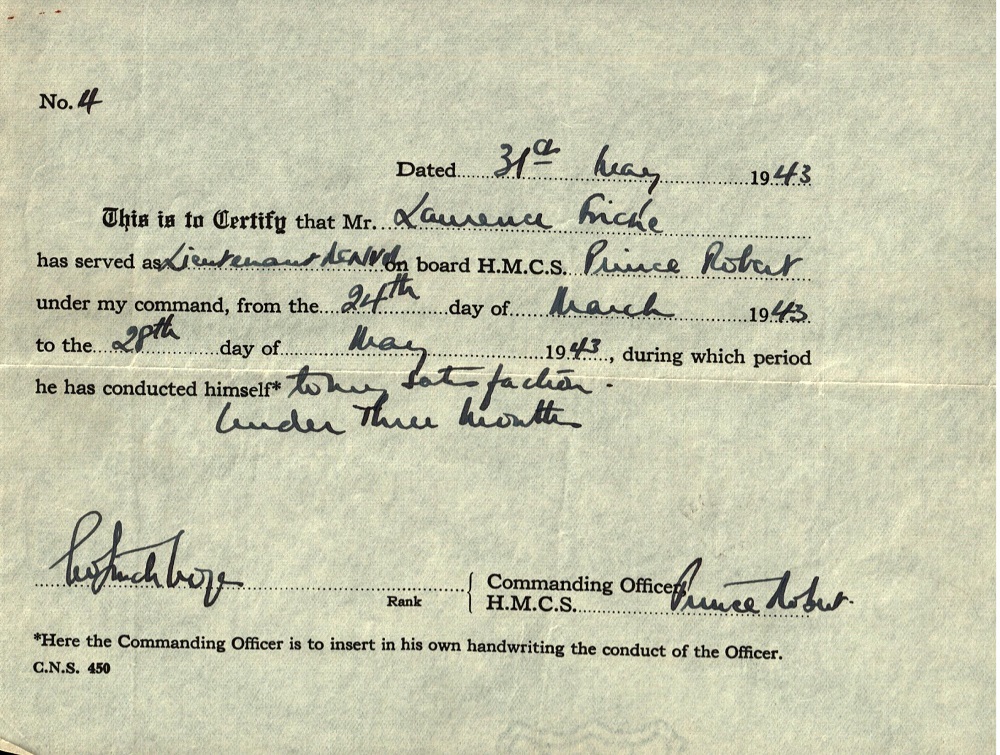 No. 4
Dated 31st May 1943
This is to Certify that Mr. Laurence Fricke
has served as Lieutenant RCNVR on board H.M.C.S. Prince Robert
under my command, from the 24th day of March 1943
to the 28th day of May 1943, during which period
he has conducted himself* to my satisfaction.
Under Three Months
Rank
Commanding Officer
H.M.C.S. Prince Robert.
*Here the Commanding Officer is to insert in his own handwriting the conduct of the Officer.
C.N.S. 450